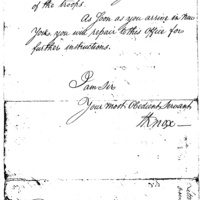 of the troops.
As soon as you arrive in New
York you will repair to this Office for
further instructions.
I am Sir
Your most Obedient Servant
HKnox